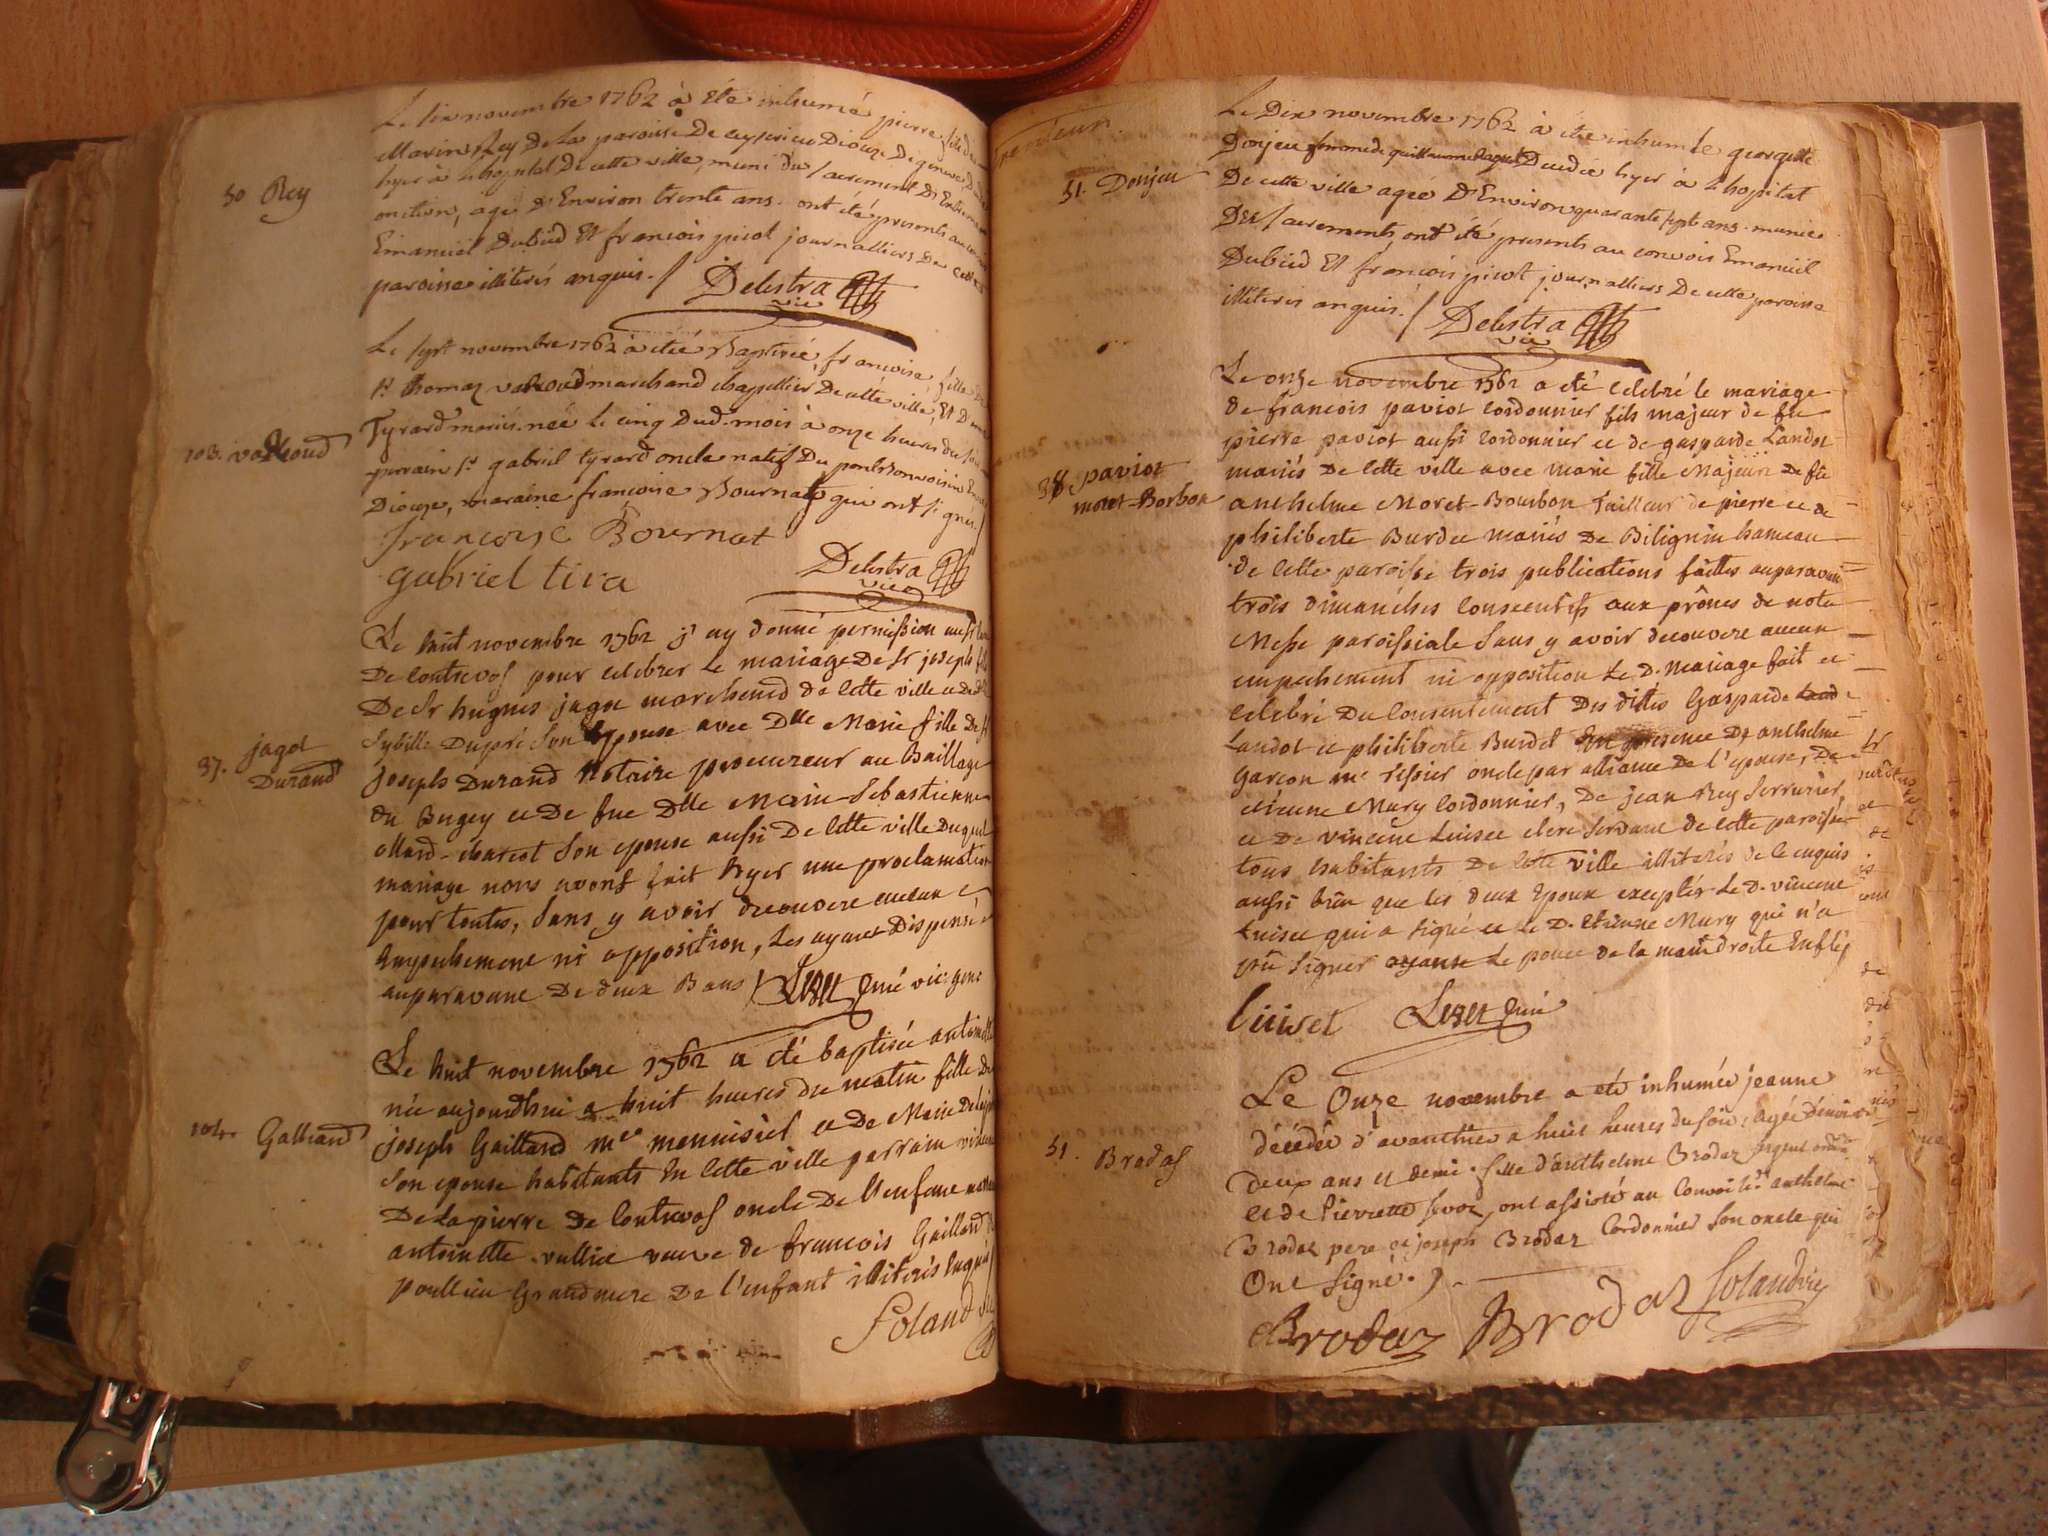 50 Rey
Le six novembre 1762 à été inhumé pierre fils de
Marin Rey De la paroisse De ceyserieu Dioceze De geneve
hyer à l'hopital De cette ville, muni du sacrement D'Extreme
onction, agé D'Environ trente ans. ont été presents au
Emanuel Dubiid Et francois picot journalliers De cette
paroisse illiterés anquis./ Delestra
vic
103.
Le sept novembre 1762 à été Baptisée, francoise, fille
Sr thomas marchand chapellier De cette ville, Et D
Tyrard mariés. née le cinq Dud. mois à onze heures du
parrain Sr gabriel tyrard oncle natif Du pontbeonvoisin
Dioceze, maraine francoise Bournat qui ont signés./
francoise Bournat
gabriel tira
Delestra
vic
37. jagot
Durand
Le huit novembre 1762 j'ay donné permission au
De Contrevos pour celebrer le mariage De Sr joseph fils
De Sr hugues jagot marchand de Cette ville et De
Sybille Dupré son Epouse avec Dlle Marie fille De
joseph Durand Notaire procureur au Baillage
du Bugey et De fue Dlle Marie Sebastienne
ollard-charcot son epouse aussi De Cette ville Duquel
mariage nous avons fait hyer une proclamation
pour toutes, Sans y avoir decouvert aucun
Empechement ni opposition, Les ayant Dispensé
auparavant De deux Bans Curé vic. gene
104. Galliand
Le huit novembre 1762 a été baptisée antoinette
née aujourdhui a huit heures du matin fille De
joseph Gaillard mtre mennisier et de Marie Delapierre
son epouse habitants En Cette ville parrain vincent
Delapierre de Contrevos oncle De l'Enfant
antoinette vullied veuve de francois Gaillard
poullieu Grandmere De l'enfant illiterés Enquis
Soland
51. Donjeu
Le Dix novembre 1762 à été inhumée georgette
Donjeu femme de guillaume Decedée hyer à l'hopital
De cette ville agée D'Environ quarante sept ans. munie
Des sacrements ont été presents au convois Emanuel
Dubiid Et francois picot journalliers De cette paroisse
illiterés anquis./ Delestra
vic
38. paviot
moret-Borbon
Le onze novembre 1762 a été celebré le mariage
de francois paviot Cordonnier fils majeur de feu
pierre paviot aussi Cordonnier et de gasparde Landot
mariés De Cette ville avec Marie fille Majeure De feu
anthelme Moret-Bourbon Tailleur de pierre et de
philiberte Burdet mariés De Bilignin hameau
De Cette paroisse trois publications faittes auparavant
trois dimanches Consecutifs aux prônes de notre
Messe paroissiale Sans y avoir decouvert aucun
empechement ni opposition Le D. Mariage fait et
celebré Du Consentement Des dittes Gasparde
Landot et philiberte Burdet En presence De anthelme
Garcon me Tessier oncle par alliance De l'epouse, De
etienne Mury Cordonnier, De jean Rey Serrurier
et De vincent Luiset clerc Servant de Cette paroisse
tous habitants De Cette ville illiterés de ce enquis
aussi bien que les deux Epoux exceptés Le D. vincent
Luiset qui a signé et Le D. etienne Mury qui n'a
pû Signer ayant Le pouce de la main droite Enflé
luiset Curé
51. Brodas
Le Onze novembre a eté inhumée jeanne
décédée d'avanthier a huit heures du soir; agée d'environ
deux ans et demi. fille d'anthelme Brodaz
et de Pierrette ont assisté au Convoi anthelme
Brodaz pere et joseph Brodaz Cordonnier son oncle qui
Ont Signé.
Brodaz Brodaz Soland vic